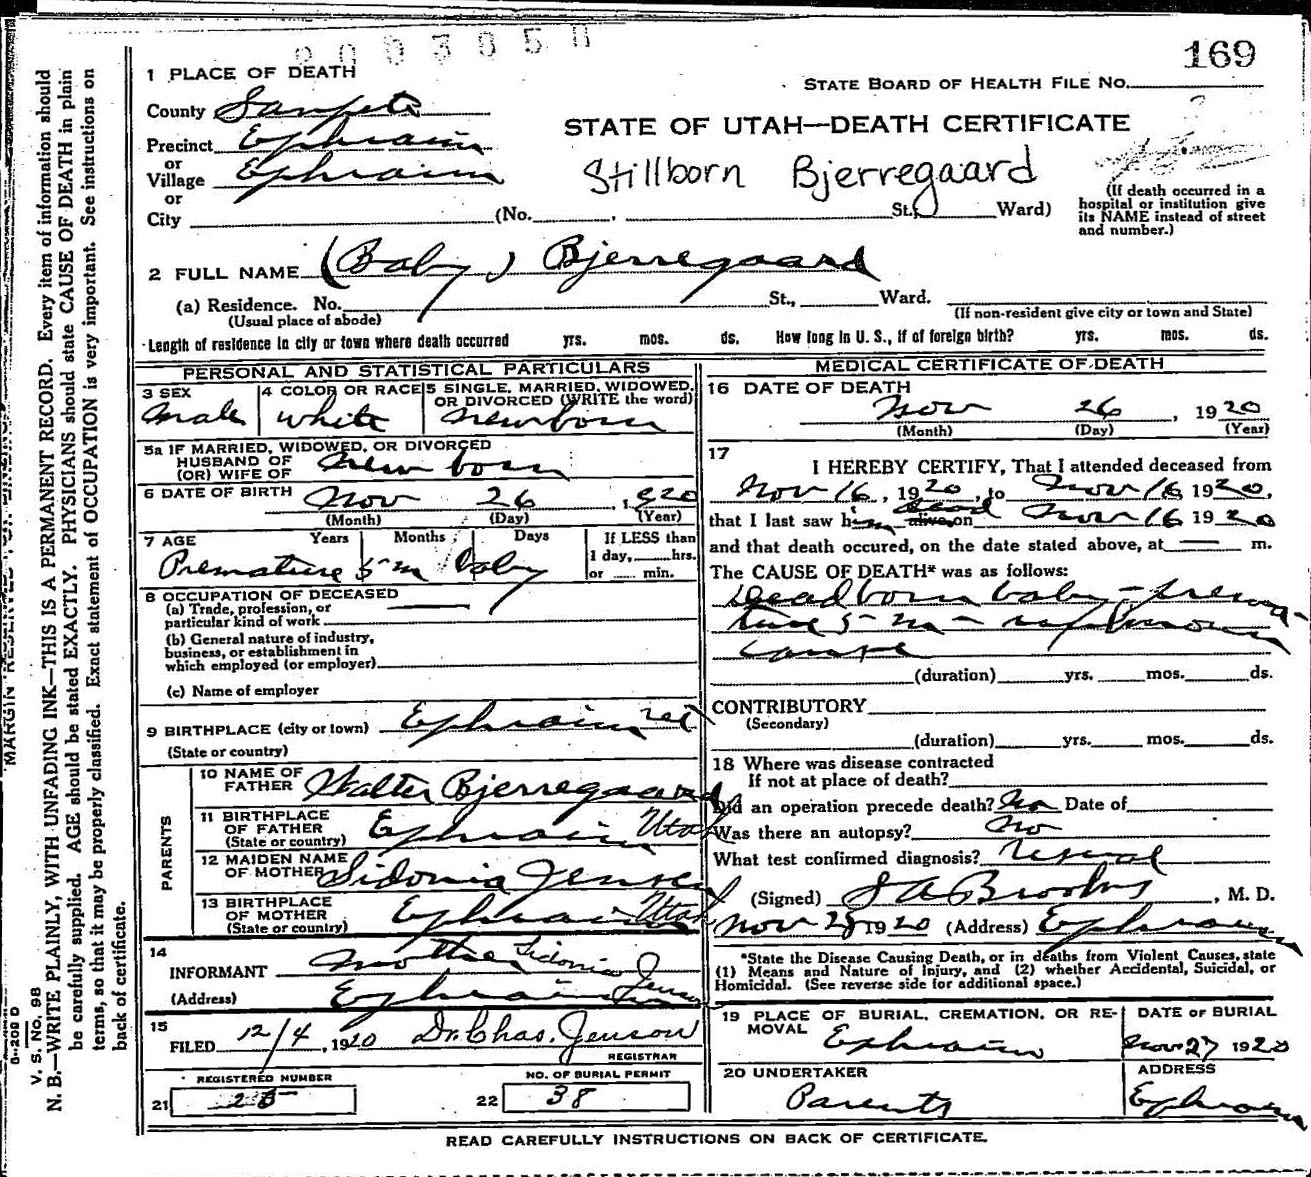 169
1 PLACE OF DEATH
STATE BOARD OF HEALTH FILE No.
County Sanpete
STATE OF UTAH—DEATH CERTIFICATE
Precinct Ephraim
or
Village Ephraim
Stillborn Bjerregaard
or
City (No. St., Ward)
(If death occurred in a
hospital or institution give
its NAME instead of street
and number.)
2 FULL NAME (Baby) Bjerregaard
(a) Residence. No. St., Ward.
(Usual place of abode)
(If non-resident give city or town and State)
Length of residence in city or town where death occurred yrs. mos. ds. How long in U. S., if of foreign birth? yrs. mos. ds.
PERSONAL AND STATISTICAL PARTICULARS
3 SEX
male
4 COLOR OR RACE
white
5 SINGLE, MARRIED, WIDOWED,
OR DIVORCED (WRITE the word)
newborn
5a IF MARRIED, WIDOWED, OR DIVORCED
HUSBAND OF
(OR) WIFE OF
new born
6 DATE OF BIRTH Nov 26, 1920
(Month) (Day) (Year)
7 AGE Years Months Days
If LESS than
1 day, hrs.
or min.
Premature 5 m baby
8 OCCUPATION OF DECEASED
(a) Trade, profession, or
particular kind of work
(b) General nature of industry,
business, or establishment in
which employed (or employer)
(c) Name of employer
9 BIRTHPLACE (city or town) Ephraim
(State or country)
PARENTS
10 NAME OF
FATHER Walter Bjerregaard
11 BIRTHPLACE
OF FATHER
(State or country) Ephraim Utah
12 MAIDEN NAME
OF MOTHER Sidonia Jensen
13 BIRTHPLACE
OF MOTHER
(State or country) Ephraim Utah
14
INFORMANT Mother Sidonia Jenson
(Address) Ephraim
15
FILED 12/4, 1920 Dr. Chas. Jenson
REGISTRAR
REGISTERED NUMBER
21 25
NO. OF BURIAL PERMIT
22 38
MEDICAL CERTIFICATE OF DEATH
16 DATE OF DEATH
Nov 26, 1920
(Month) (Day) (Year)
17
I HEREBY CERTIFY, That I attended deceased from
Nov 16, 1920, to Nov 16 1920,
that I last saw him alive dead on Nov 16 1920
and that death occured, on the date stated above, at — m.
The CAUSE OF DEATH* was as follows:
Dead born baby - prema-
ture 5 m -
cause
(duration) yrs. mos. ds.
CONTRIBUTORY
(Secondary)
(duration) yrs. mos. ds.
18 Where was disease contracted
If not at place of death?
Did an operation precede death? No Date of
Was there an autopsy? No
What test confirmed diagnosis?
(Signed) , M. D.
Nov 28 1920 (Address) Ephraim
*State the Disease Causing Death, or in deaths from Violent Causes, state
(1) Means and Nature of Injury, and (2) whether Accidental, Suicidal, or
Homicidal. (See reverse side for additional space.)
19 PLACE OF BURIAL, CREMATION, OR RE-
MOVAL
Ephraim
DATE OF BURIAL
Nov 27 1920
20 UNDERTAKER
Parents
ADDRESS
Ephraim
READ CAREFULLY INSTRUCTIONS ON BACK OF CERTIFICATE.
V. S. No. 98
N. B.—WRITE PLAINLY, WITH UNFADING INK—THIS IS A PERMANENT RECORD. Every item of information should
be carefully supplied. AGE should be stated EXACTLY. PHYSICIANS should state CAUSE OF DEATH in plain
terms, so that it may be properly classified. Exact statement of OCCUPATION is very important. See instructions on
back of certificate.